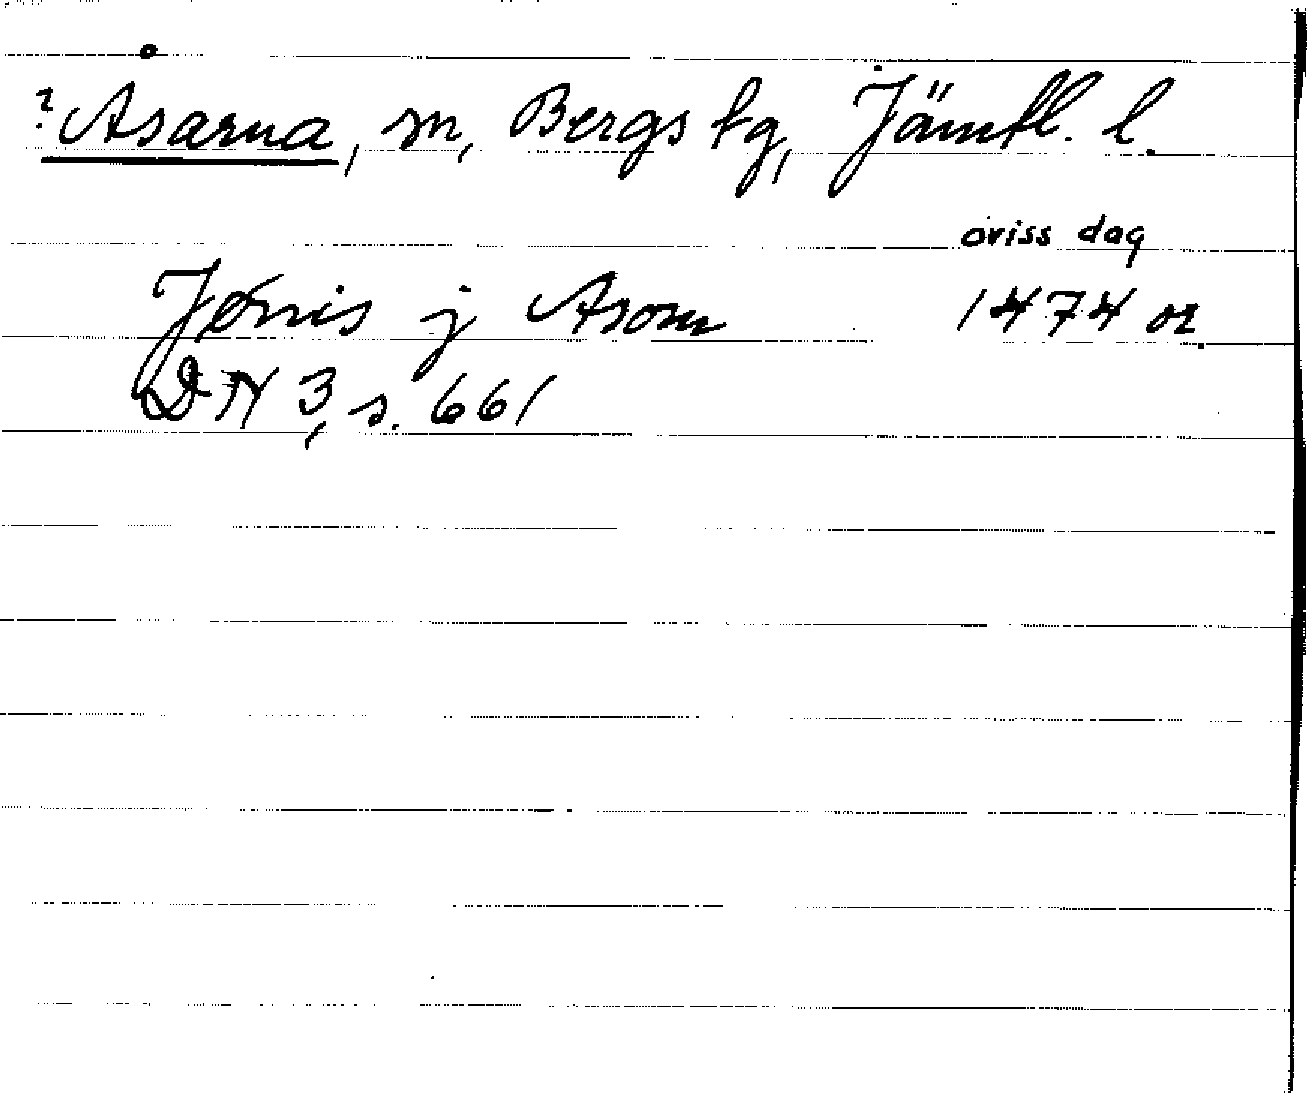 ? Åsarna, sn, Bergs tg, Jämtl. l.
oviss dag
Jönis j Asom 1474 or.
DN 3, s. 661